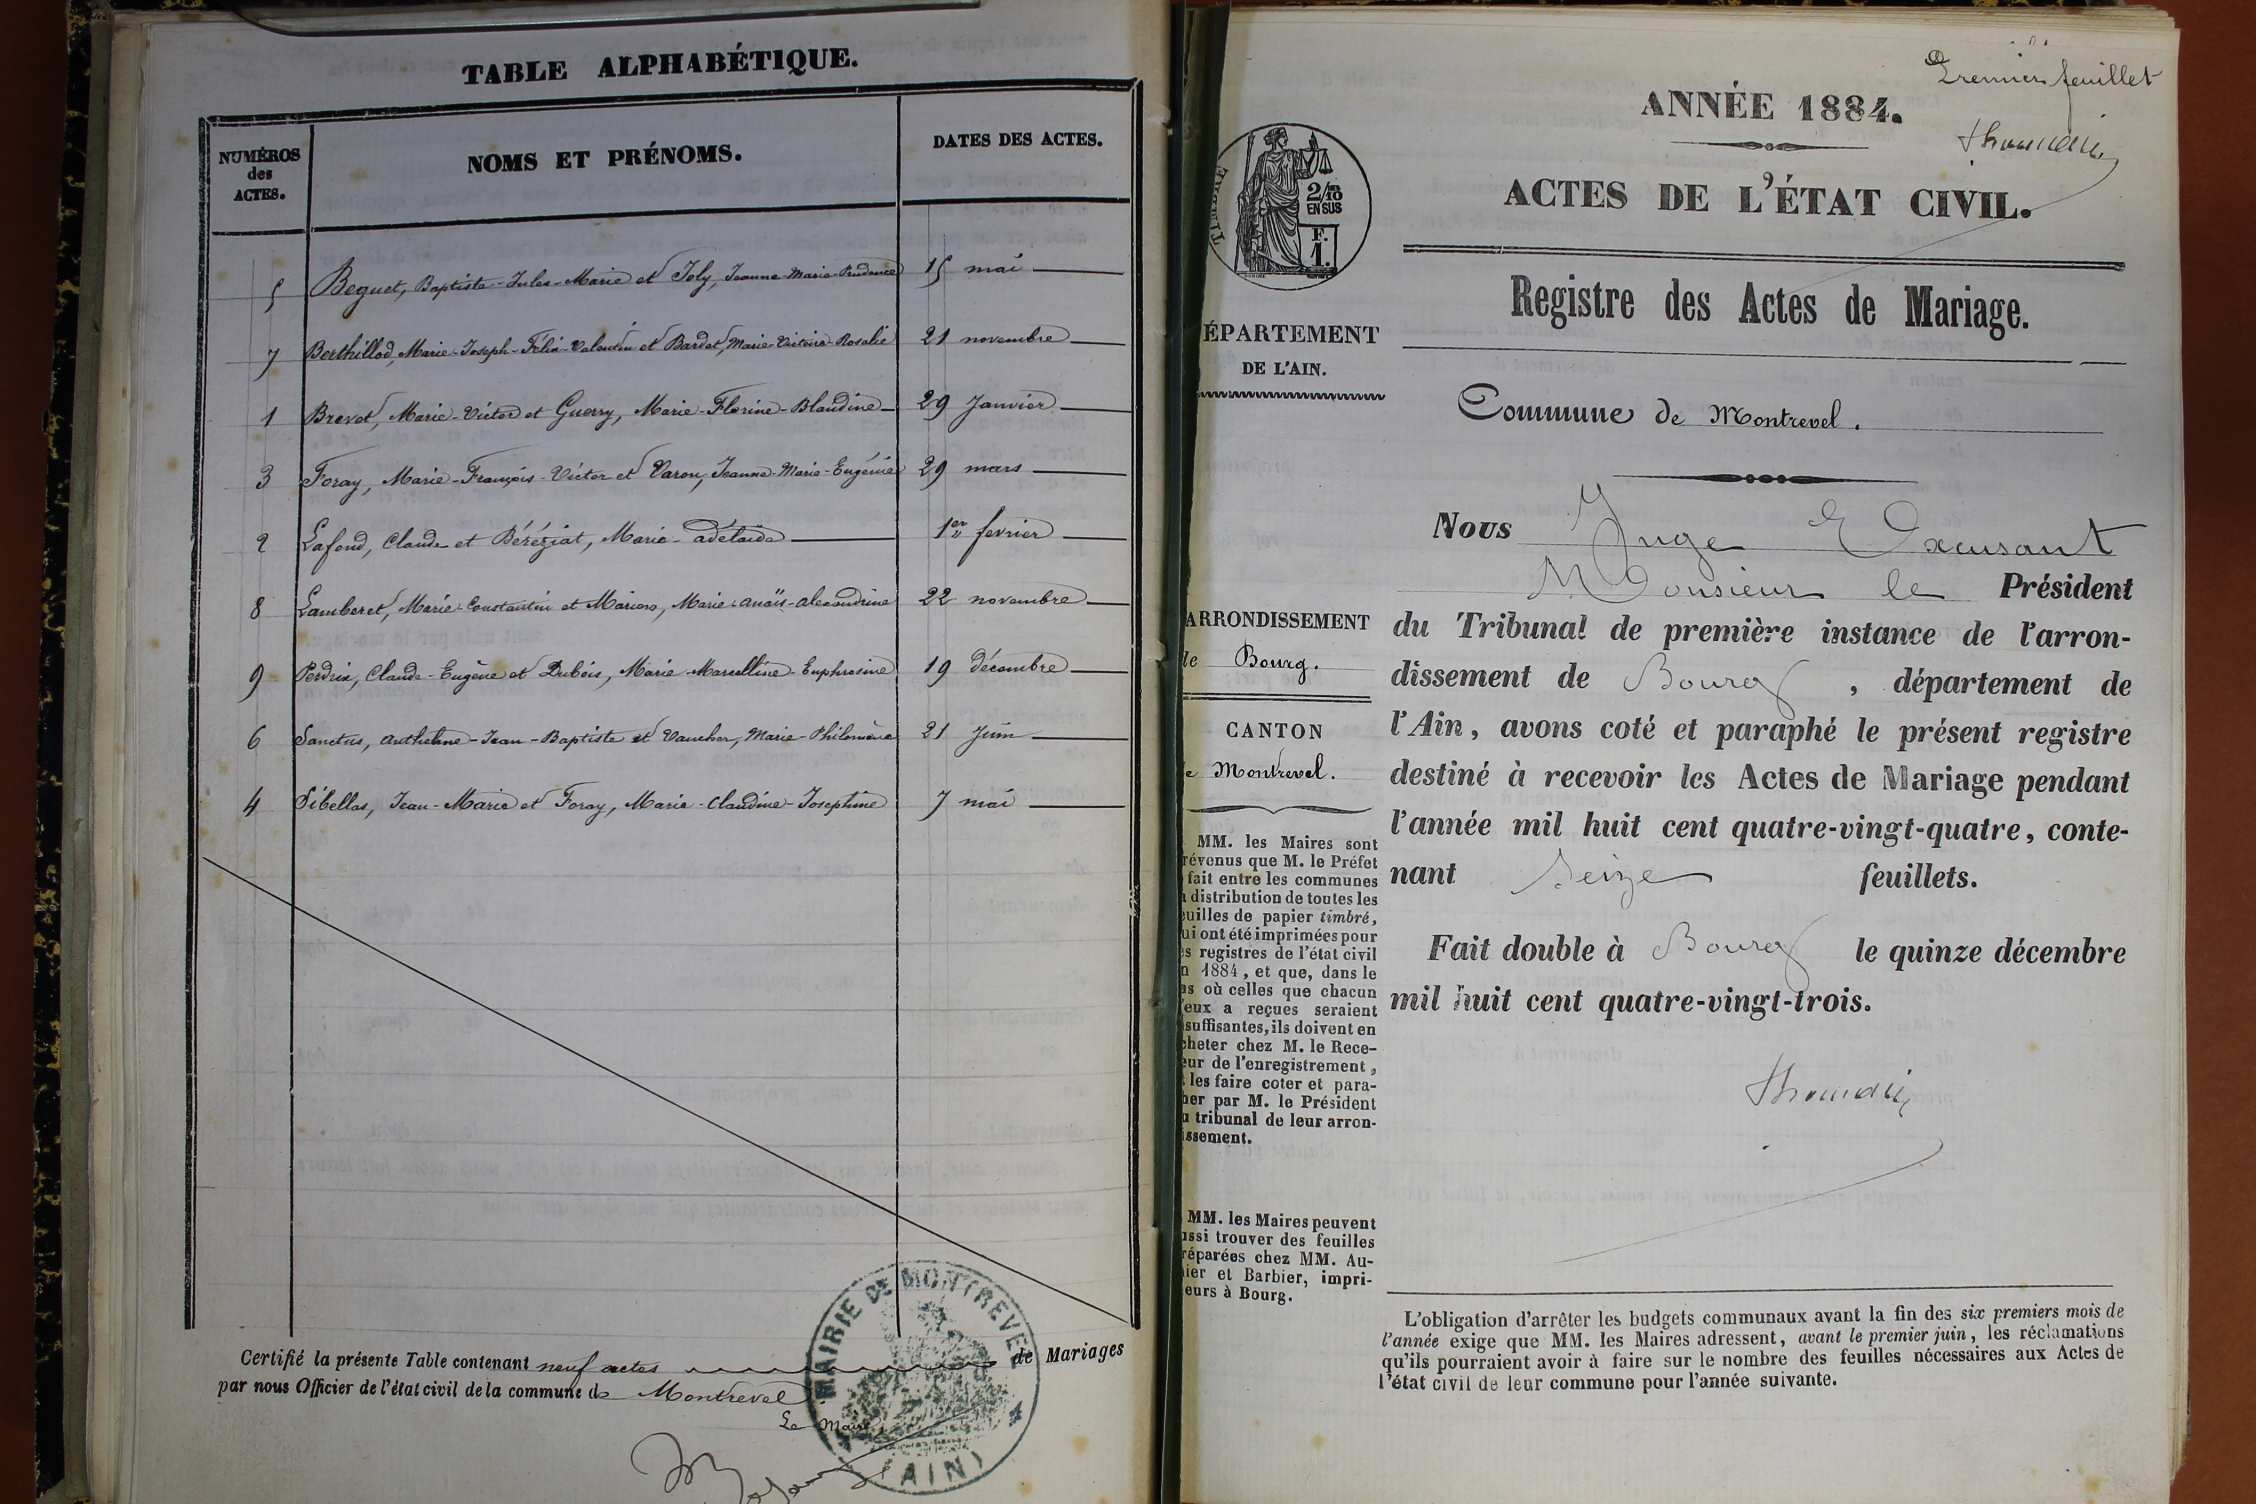 TABLE ALPHABÉTIQUE.
NUMÉROS
des
ACTES.
NOMS ET PRÉNOMS.
DATES DES ACTES.
5 Beguet, Baptiste-Jules-Marie et Joly, Jeanne-Marie-Prudence 15 mai
7 Berthillod, Marie-Joseph-Félix-Valentin et Bardet, Marie-Victoire-Rosalie 21 novembre
1 Brevet, Marie-Victor et Guerry, Marie-Florine-Blandine 29 Janvier
3 Foray, Marie-François-Victor et Varon, Jeanne-Marie-Eugénie 29 mars
2 Lafond, Claude et Béréziat, Marie-adélaïde 1er février
8 Lamberet, Marie-Constantin et Marion, Marie-anaïs-alexandrine 22 novembre
9 Perdrix, Claude-Eugène et Dubois, Marie-Marcelline-Euphrosine 19 décembre
6 Sanctus, anthelme-Jean-Baptiste et Vaucher, Marie-Philomène 21 Juin
4 Sibellas, Jean-Marie et Foray, Marie-Claudine-Josephine 7 mai
Certifié la présente Table contenant neuf actes de Mariages
par nous Officier de l'état civil de la commune de Montrevel
Le Maire,
MAIRIE DE MONTREVEL
(AIN)
Premier feuillet
ANNÉE 1884.
ACTES DE L'ÉTAT CIVIL.
TIMBRE
2/10
EN SUS
F.
1.
Registre des Actes de Mariage.
ÉPARTEMENT
DE L'AIN.
Commune de Montrevel.
ARRONDISSEMENT
de Bourg.
CANTON
de Montrevel.
MM. les Maires sont
révenus que M. le Préfet
fait entre les communes
a distribution de toutes les
euilles de papier timbré,
ui ont été imprimées pour
es registres de l'état civil
n 1884, et que, dans le
as où celles que chacun
'eux a reçues seraient
suffisantes, ils doivent en
cheter chez M. le Rece-
eur de l'enregistrement,
t les faire coter et para-
her par M. le Président
u tribunal de leur arron-
issement.
MM. les Maires peuvent
ussi trouver des feuilles
réparées chez MM. Au-
ier et Barbier, impri-
eurs à Bourg.
Nous Juge Excusant
Monsieur le Président
du Tribunal de première instance de l'arron-
dissement de Bourg, département de
l'Ain, avons coté et paraphé le présent registre
destiné à recevoir les Actes de Mariage pendant
l'année mil huit cent quatre-vingt-quatre, conte-
nant Seize feuillets.
Fait double à Bourg le quinze décembre
mil huit cent quatre-vingt-trois.
L'obligation d'arrêter les budgets communaux avant la fin des six premiers mois de
l'année exige que MM. les Maires adressent, avant le premier juin, les réclamations
qu'ils pourraient avoir à faire sur le nombre des feuilles nécessaires aux Actes de
l'état civil de leur commune pour l'année suivante.